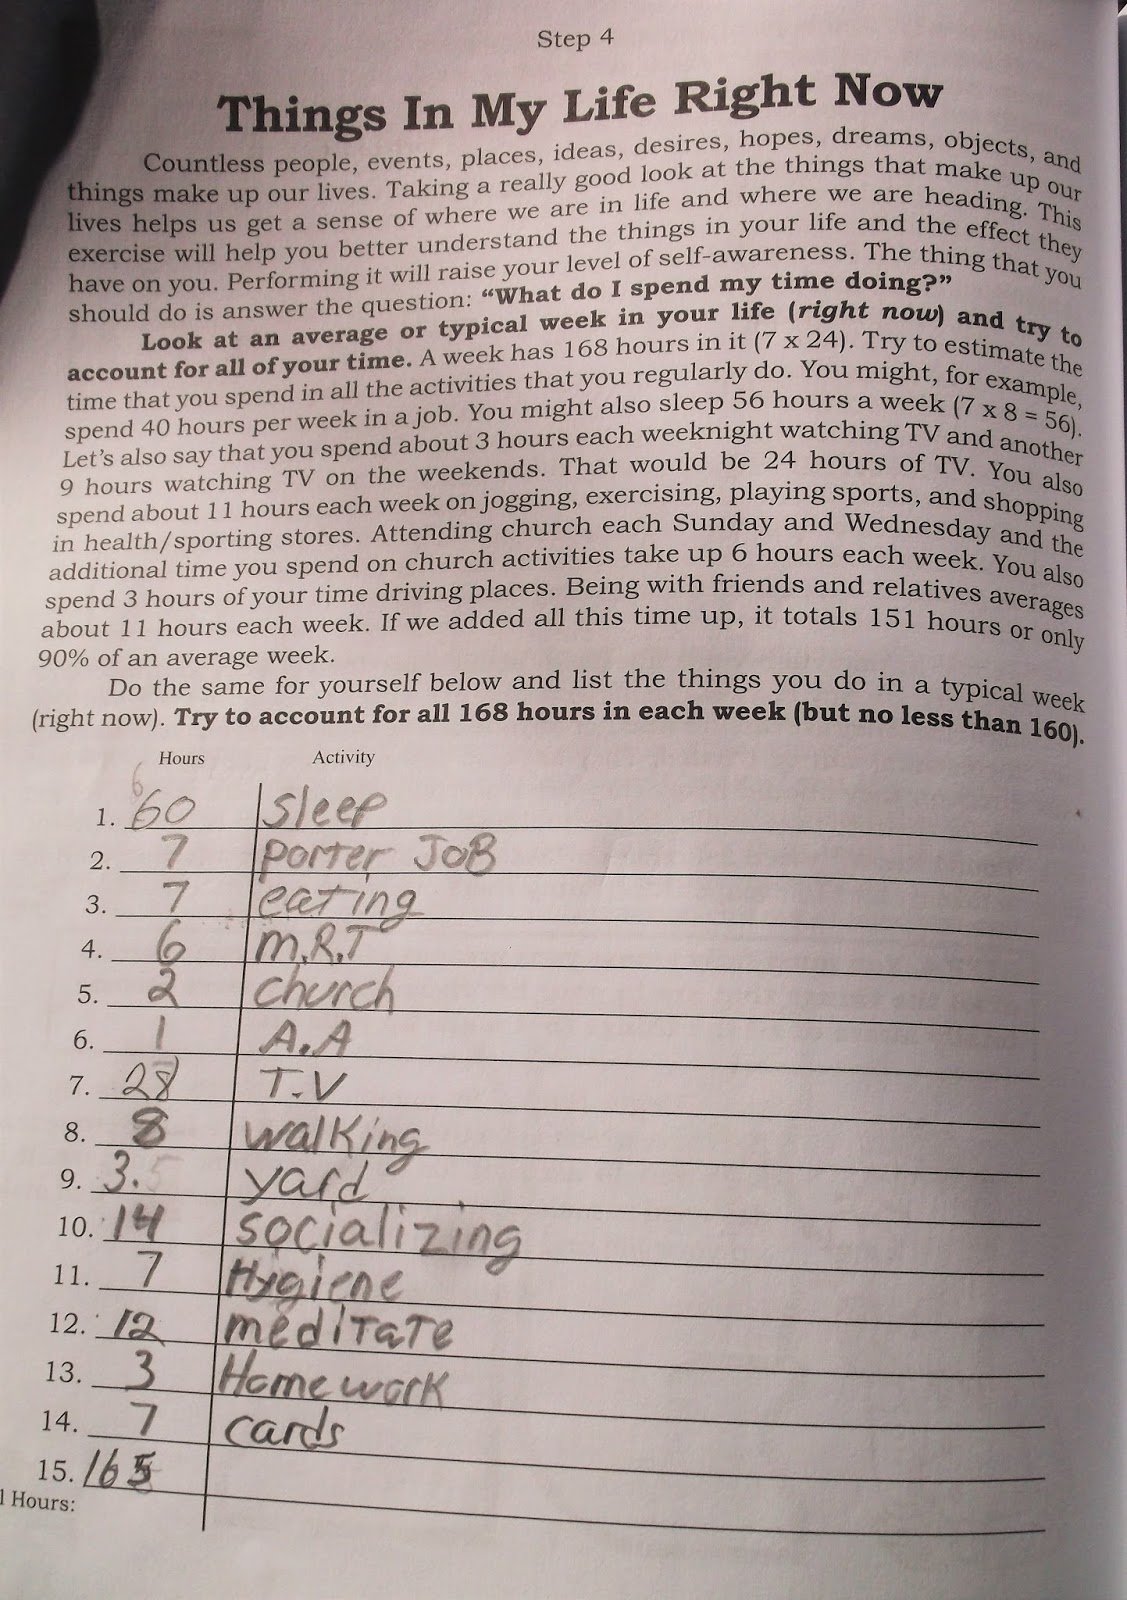 Step 4
Things In My Life Right Now
Countless people, events, places, ideas, desires, hopes, dreams, objects, and
things make up our lives. Taking a really good look at the things that make up our
lives helps us get a sense of where we are in life and where we are heading. This
exercise will help you better understand the things in your life and the effect they
have on you. Performing it will raise your level of self-awareness. The thing that you
should do is answer the question: “What do I spend my time doing?”
Look at an average or typical week in your life (right now) and try to
account for all of your time. A week has 168 hours in it (7 x 24). Try to estimate the
time that you spend in all the activities that you regularly do. You might, for example,
spend 40 hours per week in a job. You might also sleep 56 hours a week (7 x 8 = 56).
Let’s also say that you spend about 3 hours each weeknight watching TV and another
9 hours watching TV on the weekends. That would be 24 hours of TV. You also
spend about 11 hours each week on jogging, exercising, playing sports, and shopping
in health/sporting stores. Attending church each Sunday and Wednesday and the
additional time you spend on church activities take up 6 hours each week. You also
spend 3 hours of your time driving places. Being with friends and relatives averages
about 11 hours each week. If we added all this time up, it totals 151 hours or only
90% of an average week.
Do the same for yourself below and list the things you do in a typical week
(right now). Try to account for all 168 hours in each week (but no less than 160).
Hours Activity
1. 60 sleep
2. 7 porter JOB
3. 7 eating
4. 6 M.R.T
5. 2 church
6. 1 A.A
7. 28 T.V
8. 8 walking
9. 3. yard
10. 14 socializing
11. 7 Hygiene
12. 12 meditate
13. 3 Homework
14. 7 cards
15. 165
l Hours: